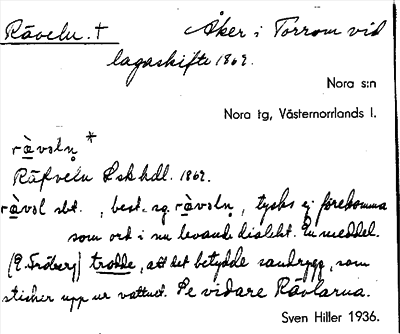 Rävelu. † Åker i Torrom vid
lagaskifte 1869.
Nora s:n
Nora tg, Västernorrlands l.
ràvəln̥ *
Räfveln Lskhdl. 1869.
ràvəl sbt. , best. sg. ràvəln̥, tycks ej förekomma
som ord i nu levande dialekt. En meddel.
(E. Fröberg) trodde, att det betydde sandrygg, som
sticker upp ur vattnet. Se vidare Rävlarna.
Sven Hiller 1936.